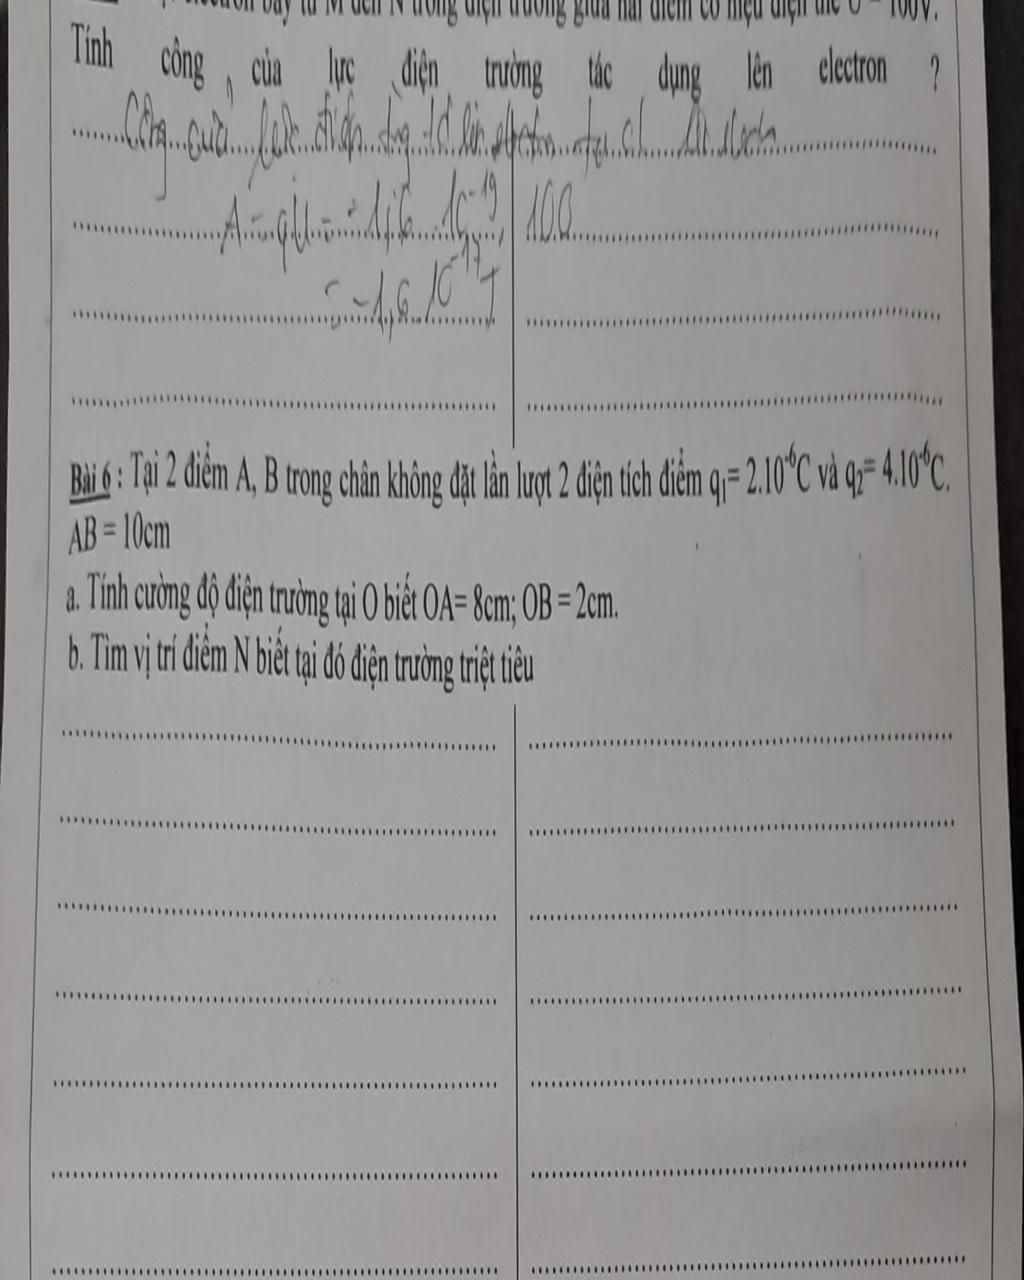 electron bay từ M đến N trong điện trường giữa hai điểm có hiệu điện thế U = 100V.
Tính công của lực điện trường tác dụng lên electron ?
Công của lực điện
A = qU = -1,6 . 10⁻¹⁹ . 100
= -1,6 . 10⁻¹⁷ J
Bài 6 : Tại 2 điểm A, B trong chân không đặt lần lượt 2 điện tích điểm q₁= 2.10⁻⁶C và q₂= 4.10⁻⁶C.
AB = 10cm
a. Tính cường độ điện trường tại O biết OA= 8cm; OB = 2cm.
b. Tìm vị trí điểm N biết tại đó điện trường triệt tiêu